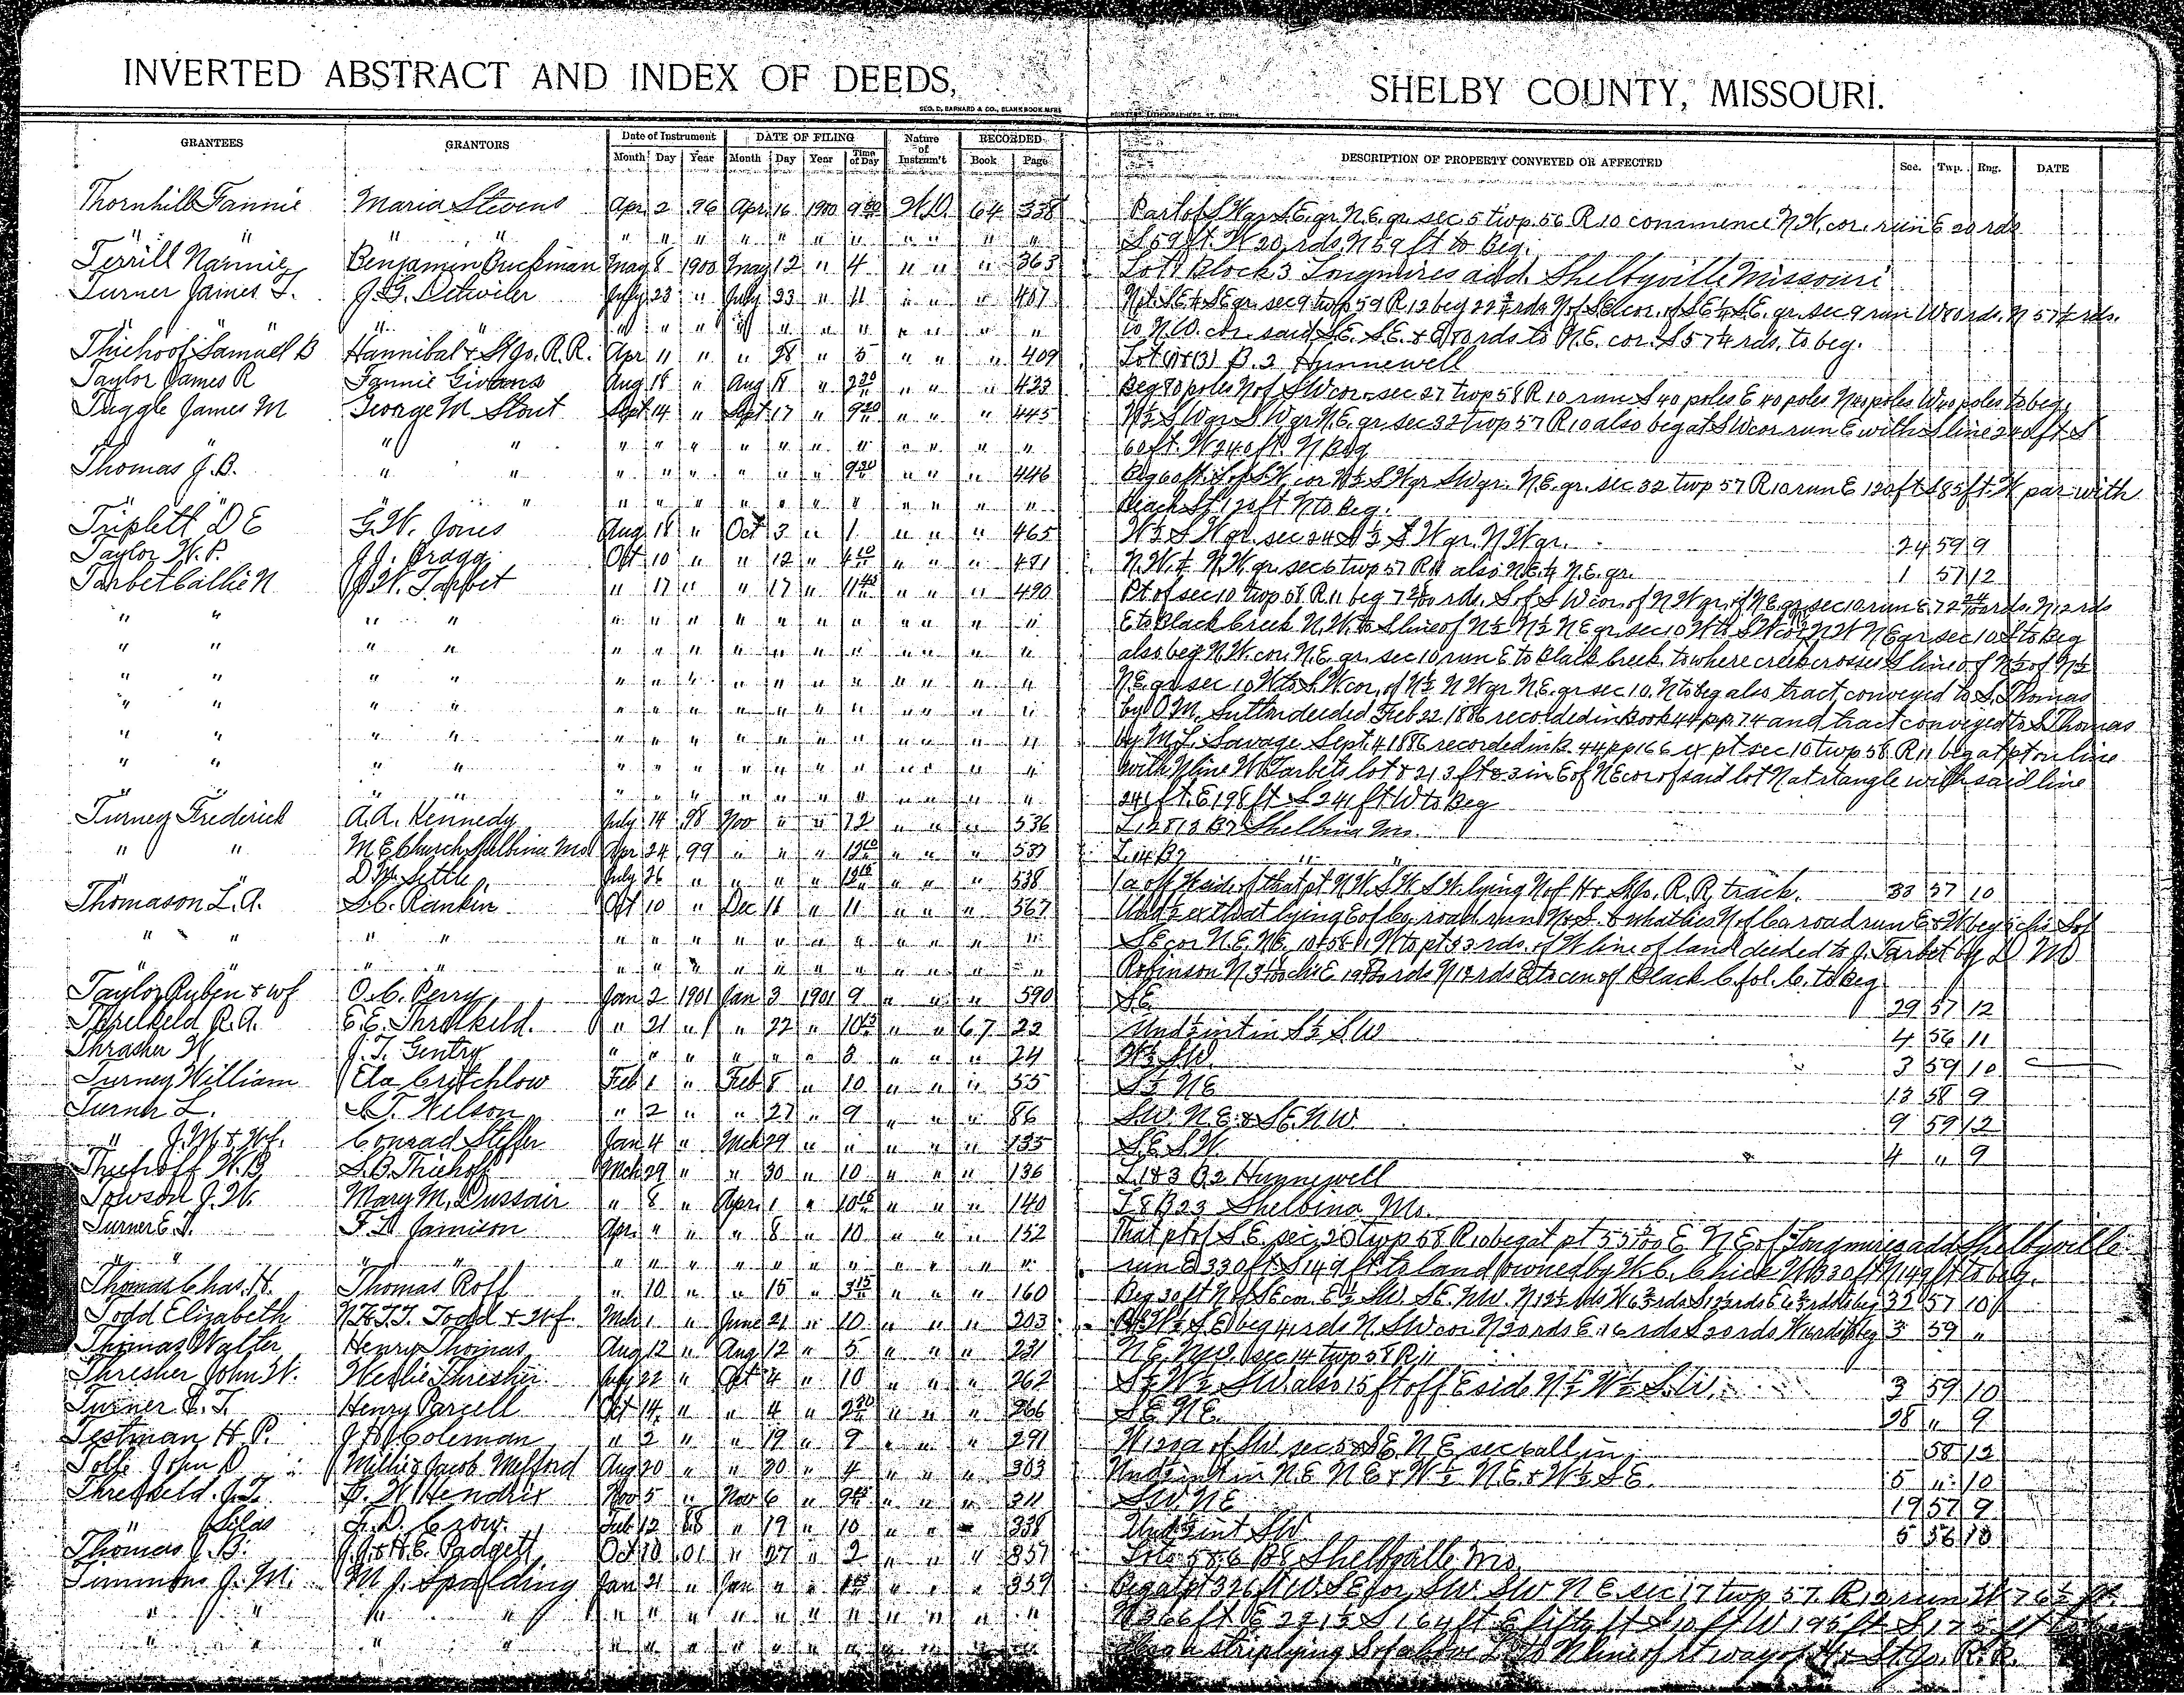 INVERTED ABSTRACT AND INDEX OF DEEDS, SHELBY COUNTY, MISSOURI.
GEO. D. BARNARD & CO., BLANK BOOK MFRS
GRANTEES GRANTORS Date of Instrument DATE OF FILING Nature of Instrum't RECORDED DESCRIPTION OF PROPERTY CONVEYED OR AFFECTED Sec. Twp. Rng. DATE
Month Day Year Month Day Year Time of Day Book Page
Thornhill Fannie Maria Stevens Apr 2 96 Apr 16 1900 9 W.D. 64 338 Part of SW qr S.E. qr N.E. qr sec 5 twp 56 R 10 commence N.W. cor. run E 20 rds
" " " " " " " " " " " " " " " S 59 ft. W 20 rds. N 59 ft to Beg.
Terrill Nannie Benjamin Buckman May 8 1900 May 12 " 4 " " " 363 Lot 1 Block 3 Longmires add. Shelbyville Missouri
Turner James T. J.G. Detwiler July 23 " July 23 " 11 " " " 407 sec 9 twp 59 R 12 beg 22 rds N of SE cor. of SE 1/4 S.E. qr. sec 9 run W 80 rds. N 57 1/2 rds.
" " " " " " " " " " " " " " " to N.W. cor. said S.E. S.E. & E 80 rds to N.E. cor. S 57 1/2 rds. to beg.
Thiehoof Samuel B Hannibal & St Jo. R.R. Apr 11 " " 28 " 5 " " " 409 B. 2 Hunnewell
Taylor James R Fannie Givans Aug 18 " Aug 18 " 2 30 " " " 423 Beg 80 poles N of SW cor. sec 27 twp 58 R 10 run S 40 poles E 40 poles N 40 poles W 40 poles to beg.
Tuggle James M George M. Stout Sept 14 " Sept 17 " 9 20 " " " 445 N 1/2 SW qr SW qr N.E. qr sec 32 twp 57 R 10 also beg at SW cor run E with S line 240 ft S
" " " " " " " " " " " " 60 ft. W 240 ft. N Beg
Thomas J.B. " " " " " " " " 9 20 " " " 446 Beg 60 ft. S of S.W. cor N 1/2 SW qr SW qr. N.E. qr. sec 32 twp 57 R 10 run E 120 ft S 85 ft. W par with
" " " " " " " " " " " " " " " 120 ft N to Beg.
Triplett D E G.W. Jones Aug 18 " Oct 3 " 1 " " " 465 W 1/2 SW qr. sec 24 S 1/2 SW qr. NW qr. 24 59 9
Taylor W.P. J.J. Bragg Oct 10 " " 12 " 4 10 " " " 481 N.W. 1/4 N.W. qr. sec 6 twp 57 R 11 also N.E. 1/4 N.E. qr. 1 57 12
Tarbet Callie N J.W. Tarbet " 17 " " 17 " 11 45 " " " 490 Pt of sec 10 twp 58 R 11 beg rds. S of SW cor. of NW qr. of N.E. qr sec 10 run E 72 rds. N 12 rds
" " " " " " " " " " " " " " " E to Black Creek N.W. to S line of N 1/2 N 1/2 NE qr. sec 10 W to SW cor NW NE qr sec 10 S to Beg
" " " " " " " " " " " " " " " also beg N.W. cor. N.E. qr. sec 10 run E to Black Creek to where creek crosses S line of N 1/2 of N 1/2
" " " " " " " " " " " " " " " N.E. qr sec 10 W to S.W. cor. of N 1/2 N W qr N.E. qr sec 10, N to beg also tract conveyed to S. Thomas
" " " " " " " " " " " " " " " by O.M. Sutton deeded Feb 22 1886 recorded in Book 44 pp. 74 and tract conveyed to S. Thomas
" " " " " " " " " " " " " " " Savage Sept. 4 1886 recorded in B. 44 pp 166 pt sec 10 twp 58 R 11 beg at pt on line
" " " " " " " " " " " " " " " with N line W. Tarbets lot & 213 ft & 3 in E of NE cor of said lot N at rt angle with said line
" " " " " " " " " " " " " " 241 ft. E 198 ft S 241 ft W to Beg
Turney Frederick A.A. Kennedy July 14 98 Nov " " 12 " " " 536 L 12 & 13 B 7 Shelbina Mo.
" " M E Church Shelbina Mo Apr 24 99 " " " " " " 537 L. 14 B 7 " "
" " Settle July 26 " " " " " " " 538 1 a off W side of that pt N.W. S.W. S.W. lying N of H & St Jo. R.R. track. 33 57 10
Thomason L.A. S.C. Rankin Oct 10 " Dec 11 " 11 " " " 567 Und 1/2 ex that lying E of Co. road run N & S. & what lies N of Co road run E & W beg chs S of
" " " " " " " " " " " " " " " SE cor N.E. NE. 10-58-11 W to pt rds. of W line of land deeded to J. Tarbet by D M
" " " " " " " " " " " " " " " Robinson N rds N 12 rds E to cen of Black C. fol. C. to Beg
Taylor Ruben & wf O.C. Perry Jan 2 1901 Jan 3 1901 9 " " " 590 SE 29 57 12
Threlkeld R.A. E.E. Threlkeld. " 21 " " 22 " 10 45 " " 67 22 Und 1/2 int in S 1/2 SW 4 56 11
Thrasher W J.T. Gentry " " " " " " 8 " " " 24 W 1/2 SW. 3 59 10
Turney William Eta Critchlow Feb 1 " Feb 8 " 10 " " " 55 S 1/2 NE 13 58 9
Turner L. Wilson " 2 " " 27 " 9 " " " 86 S.W. N.E. & SE. NW. 9 59 12
" J.M. & Wf. Conrad Steffer Jan 4 " Mch 29 " " " " " 135 S.E. S.W. 4 " 9
Thiehoff W.B S.B. Thiehoff Mch 29 " " 30 " 10 " " " 136 L 1 & 3 B 2 Hunnewell
Towson J.W. Mary M. Dussair " 8 " Apr. 1 " 10 15 " " " 140 L 8 B 23 Shelbina Mo.
Turner E.T. Jamison Apr " " " 8 " 10 " " " 152 That pt of S.E. sec. 20 twp 58 R 10 beg at pt E N.E of Longmires add Shelbyville
" " " " " " " " " " " " " " " run E 330 ft S 149 ft to land owned by W.C. Chick W 330 ft N 149 ft to beg.
Thomas Chas. H. Thomas Roff " 10 " " 15 " 3 15 " " " 160 Beg 20 ft N of SE cor. E 1/2 SW. SE. NW. N 12 1/2 rds W 6 2/3 rds S 12 1/2 rds E 6 2/3 rds to beg 32 57 10
Todd Elizabeth Todd & Wf. Mch 1 " June 21 " 10 " " " 203 beg 41 rds N. SW cor N 20 rds E. 16 rds S 20 rds W 16 rds to beg 3 59 "
Thomas Walter Henry Thomas Aug 12 " Aug 12 " 5 " " " 231 N.E. NW. sec 14 twp 58 R 11
Thresher John W. Thresher July 22 " Oct 4 " 10 " " " 262 S 1/2 W 1/2 SW. also 15 ft off E side N 1/2 W 1/2 S.W. 3 59 10
Turner E.T. Henry Parcell Oct 14 " " 4 " 2 30 " " " 266 SE NE. 28 " 9
Testman H.P. Coleman " 2 " " 19 " 9 " " " 291 W 120 a of SW sec 5 & SE N E sec 6 all in 58 12
Tolle John D Jacob Mefford Aug 20 " " 30 " 4 " " " 303 Und int in N.E NE & W 1/2 N.E. & W 1/2 S.E. 5 " 10
Threlkeld. J.T. Hendrix Nov 5 " Nov 6 " 9 " " " 311 SW NE 19 57 9
" Silas Crow. Feb 12 88 " 19 " 10 " " 338 Und int SW. 5 56 10
Thomas J.B. Padgett Oct 10 01 " 27 " 2 " " " 357 Lots 5 & 6 B 8 Shelbyville Mo
Timmons J.M. M.J. Spalding Jan 21 " Jan " " " " " 359 Beg at pt 326 ft W SE cor. SW SW NE sec 17 twp 57. R 10 run W 76 1/2 ft.
" " " " " " " " " " " " " " " N 366 ft E 221 1/2 S 164 ft E fifty ft S 10 ft W 195 ft S 175 ft to
" " " " " " " " " " " " " " " Also a strip lying S of above L. to N line of rt way of H & St. Jo. R.R.